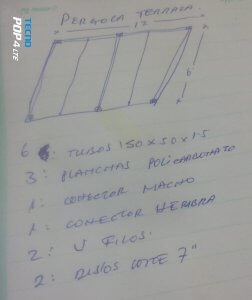 PERGOLA TERRAZA
12
6
6: TUBOS 150 x 50 x 1.5
3: PLANCHAS POLICARBONATO
1: CONECTOR MACHO
1: CONECTOR HEMBRA
2: U FILOS.
2: DISCOS CORTE 7"
TECNO
POP 4 LTE